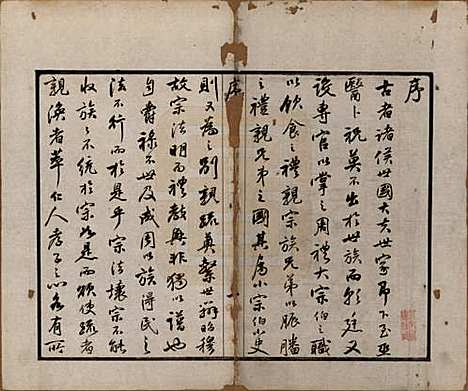 序
古者諸侯世國大夫世家即下至巫
醫卜祝莫不出於世族而朝廷又
設專官以掌之周禮大宗伯之職
以飲食之禮親宗族兄弟以脤膰
之禮親兄弟之國其屬小宗伯小史
序
則又為之別親疏奠繫世辨昭穆
故宗法明而禮教興非獨以譜也
自爵祿不世及威國以族得民之
法不行而於是乎宗法壞宗不能
收族族不統於宗於是而欲使疏者
親渙者萃仁人孝子之心有所